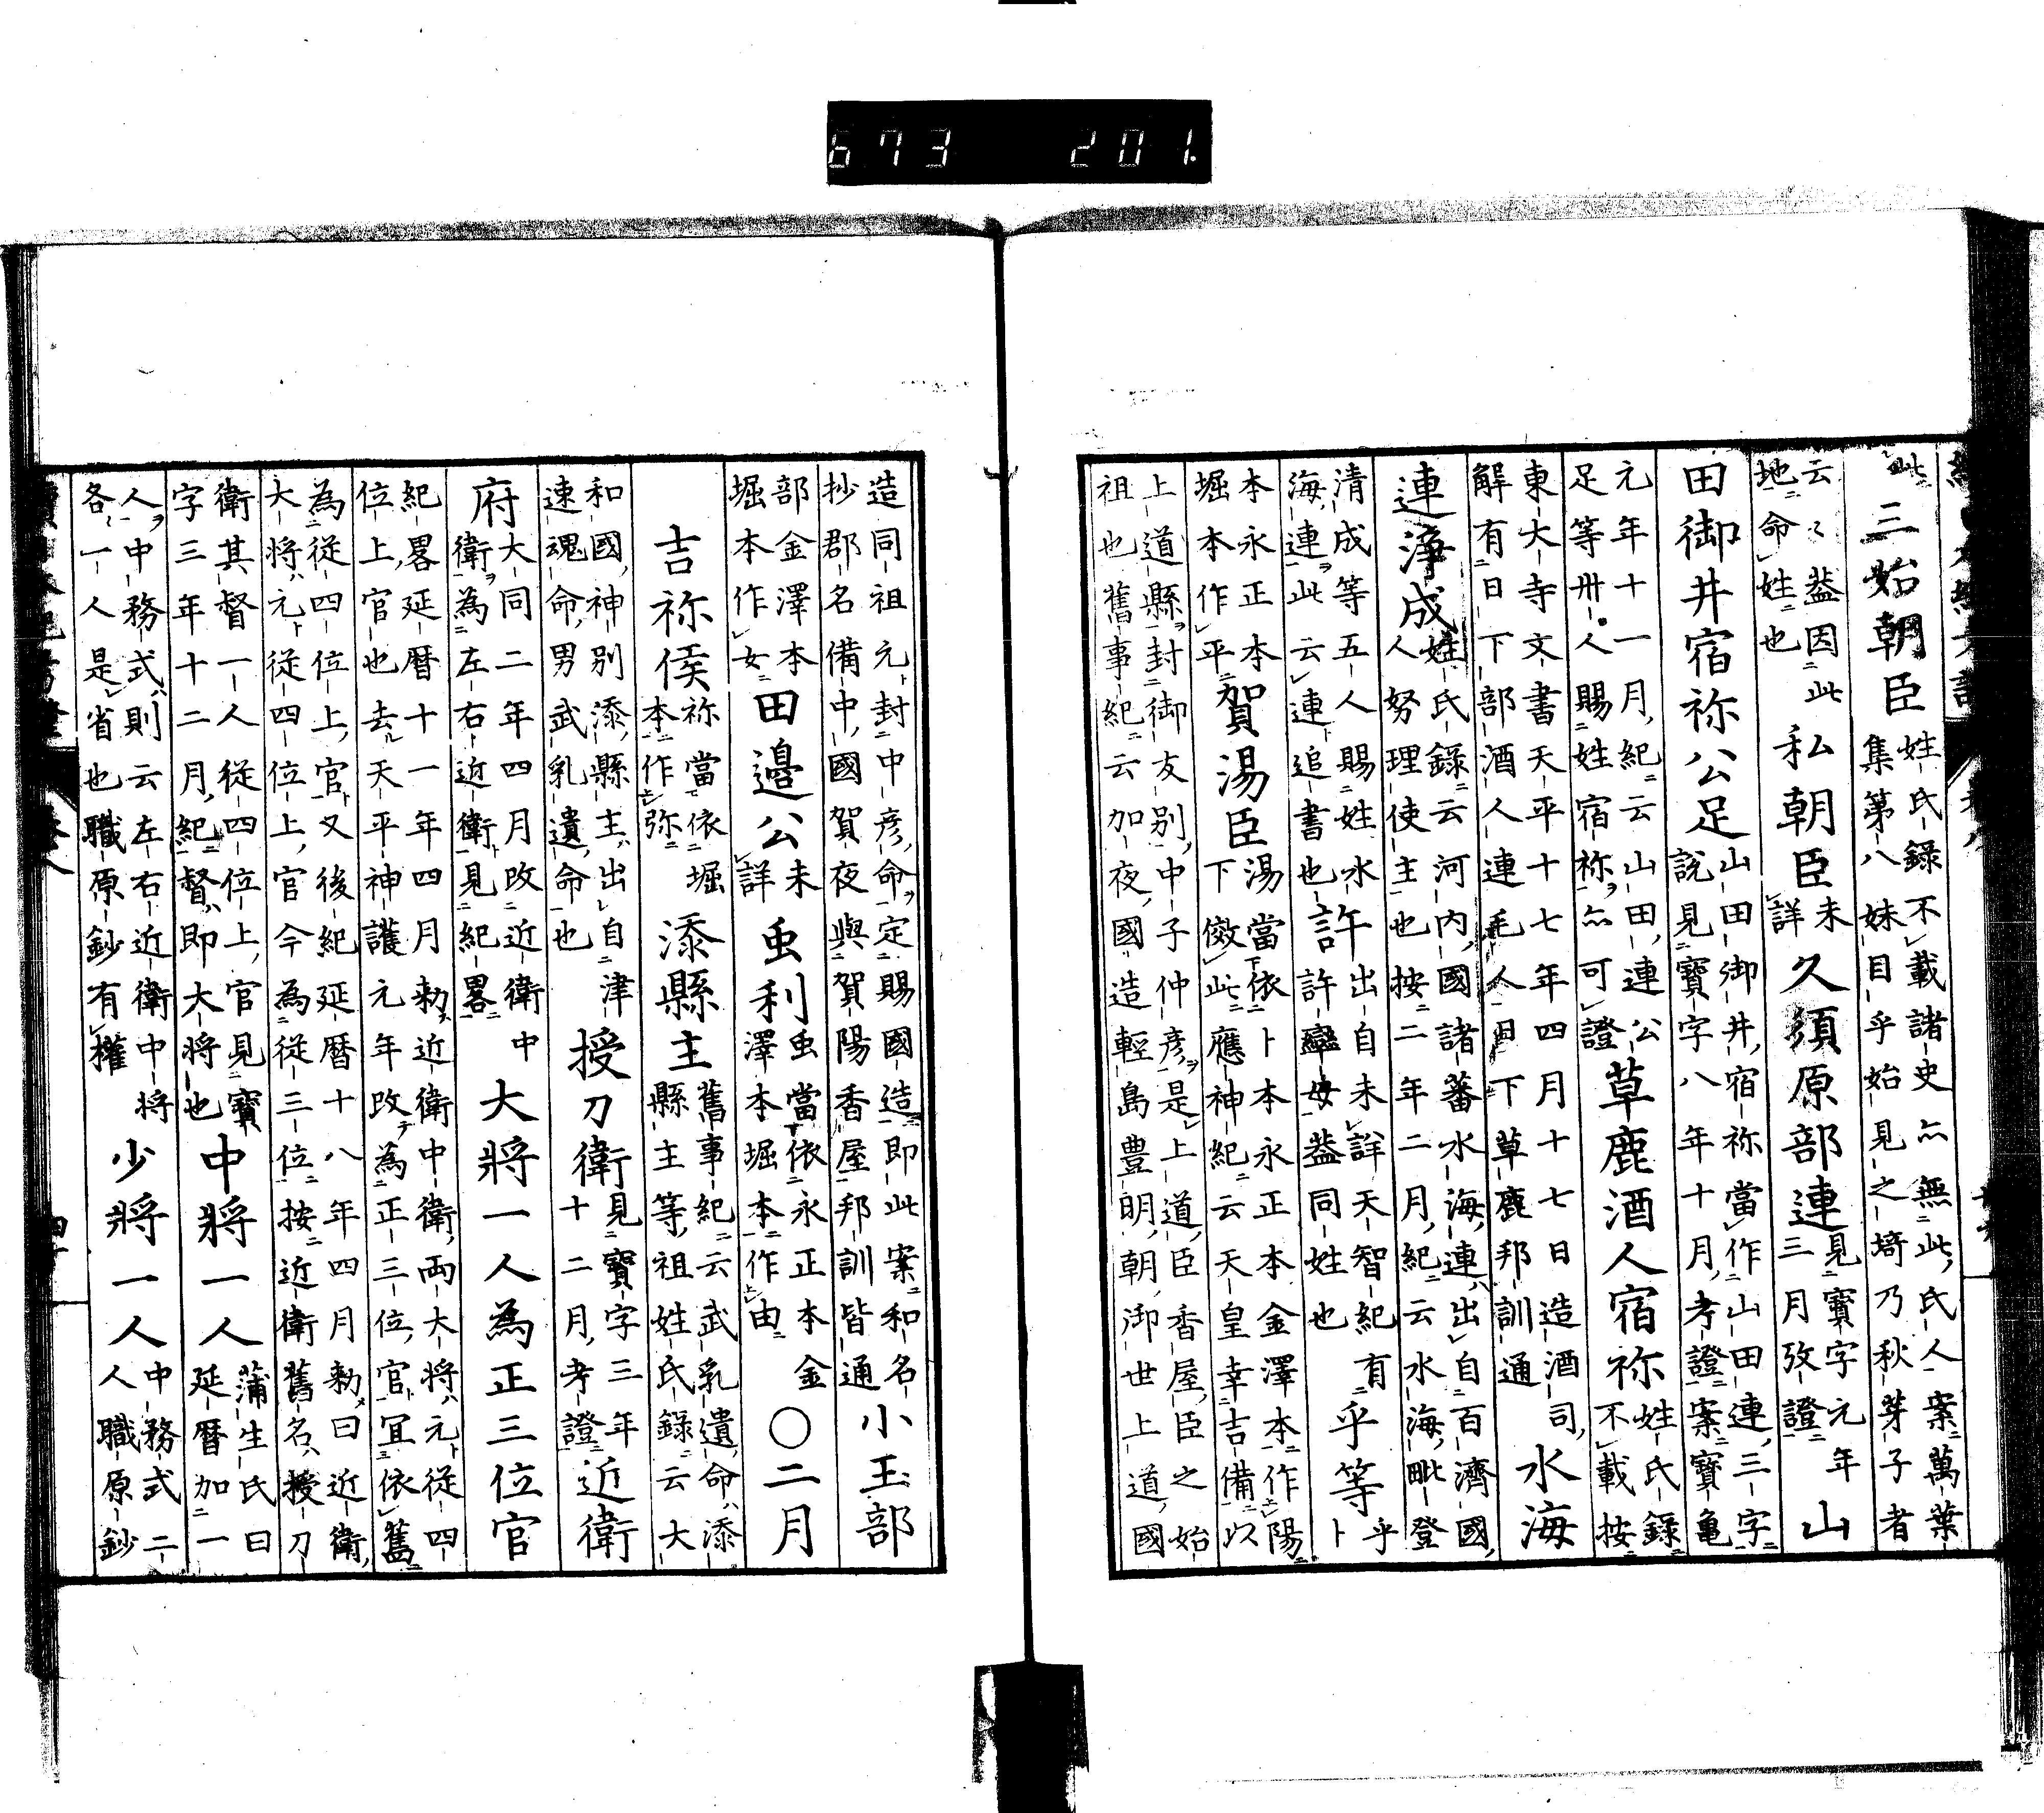 此三始朝臣姓氏録不載諸史亦無此氏人案萬葉集第八妹目乎始見之埼乃秋芽子者
云〻葢因此地命姓也私朝臣未詳久須原部連見寶字元年三月攷證山
田御井宿祢公足山田御井宿祢當作山田連三字說見寶字八年十月考證案寶亀
元年十一月紀云山田連公足等卅人賜姓宿祢亦可證草鹿酒人宿祢姓氏録不載按
東大寺文書天平十七年四月十七日造酒司解有日下部酒人連毛人日下草鹿邦訓通水海
連淨成姓氏録云河内國諸蕃水海連出自百濟國人努理使主也按二年二月紀云水海毗登
清成等五人賜姓水海連此云連追書也許出自未詳天智紀有許許母葢同姓也乎等乎卜
本永正本堀本作平賀湯臣湯當依卜本永正本金澤本作陽下傚此應神紀云天皇幸吉備以
上道縣封御友別中子仲彦是上道臣香屋臣之始祖也舊事紀云加夜國造輕島豊明朝御世上道國
造同祖元封中彦命定賜國造即此案和名抄郡名備中國賀夜與賀陽香屋邦訓皆通小玉部
部金澤本堀本作女田邉公未詳虫利虫當依永正本金澤本堀本作由〇二月
吉祢侯祢當依堀本作弥添縣主舊事紀云武乳遺命添縣主等祖姓氏録云大
和國神別添縣主出自津速魂命男武乳遺命也授刀衛見寶字三年十二月考證近衛
府大同二年四月改近衛為左右近衛見紀畧中衛大將一人為正三位官
紀畧延暦十一年四月勅近衛中衛兩大将元從四位上官也去天平神護元年改為正三位官宜依舊
為從四位上官又後紀延暦十八年四月勅曰近衛大将元從四位上官今為從三位按近衛舊名授刀
衛其督一人從四位上官見寶字三年十二月紀督即大将也中將一人蒲生氏曰延暦加一
人中務式則云左右近衛中将各一人是省也職原鈔有權少將一人中務式二人職原鈔